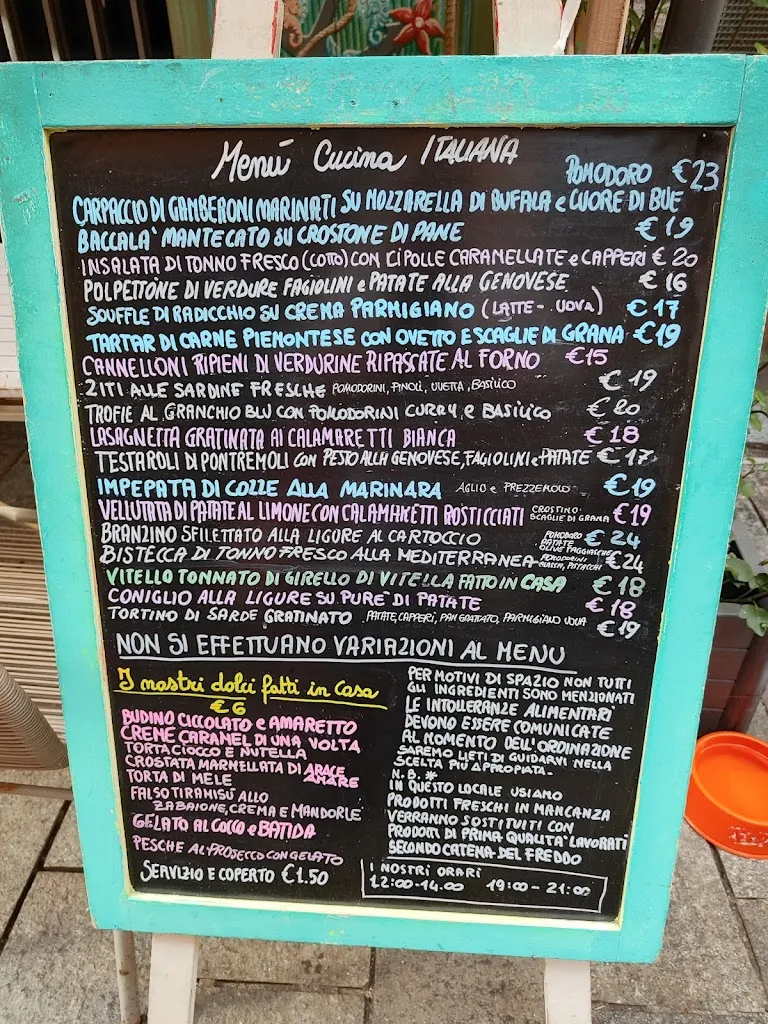 Menú Cucina ITALIANA
POMODORO €23
CARPACCIO DI GAMBERONI MARINATI SU MOZZARELLA DI BUFALA e CUORE DI BUE
BACCALA' MANTECATO SU CROSTONE DI PANE €19
INSALATA DI TONNO FRESCO (COTTO) CON CIPOLLE CARAMELLATE e CAPPERI €20
POLPETTONE DI VERDURE FAGIOLINI e PATATE ALLA GENOVESE €16
SOUFFLE DI RADICCHIO SU CREMA PARMIGIANO (LATTE - UOVA) €17
TARTAR DI CARNE PIEMONTESE CON OVETTO E SCAGLIE DI GRANA €19
CANNELLONI RIPIENI DI VERDURINE RIPASCATE AL FORNO €15
ZITI ALLE SARDINE FRESCHE POMODORINI, PINOLI, UVETTA, BASILICO €19
TROFIE AL GRANCHIO BLU CON POMODORINI CURRY e BASILICO €20
LASAGNETTA GRATINATA AI CALAMARETTI BIANCA €18
TESTAROLI DI PONTREMOLI CON PESTO ALLA GENOVESE, FAGIOLINI e PATATE €17
IMPEPATA DI COZZE ALLA MARINARA AGLIO e PREZZEMOLO €19
VELLUTATA DI PATATE AL LIMONE CON CALAMARETTI ROSTICCIATI CROSTINO SCAGLIE DI GRANA €19
BRANZINO SFILETTATO ALLA LIGURE AL CARTOCCIO POMODORO PATATE OLIVE TAGGIASCHE €24
BISTECCA DI TONNO FRESCO ALLA MEDITERRANEA POMODORINI PISTACCHI €24
VITELLO TONNATO DI GIRELLO DI VITELLA FATTO IN CASA €18
CONIGLIO ALLA LIGURE SU PURE' DI PATATE €18
TORTINO DI SARDE GRATINATO PATATE, CAPPERI, PAN GRATTATO, PARMIGIANO UOVA €19
NON SI EFFETTUANO VARIAZIONI AL MENU
I nostri dolci fatti in casa
€6
BUDINO CICCOLATO e AMARETTO
CREME CARAMEL DI UNA VOLTA
TORTA CIOCCO E NUTELLA
CROSTATA MARMELLATA DI ARACE AMARE
TORTA DI MELE
FALSO TIRAMISÚ ALLO
ZABAIONE, CREMA E MANDORLE
GELATO AL COCCO e BATIDA
PESCHE AL PROSECCO CON GELATO
SERVIZIO E COPERTO €1.50
PER MOTIVI DI SPAZIO NON TUTTI
GLI INGREDIENTI SONO MENZIONATI
LE INTOLLERANZE ALIMENTARI
DEVONO ESSERE COMUNICATE
AL MOMENTO DELL'ORDINAZIONE
SAREMO LIETI DI GUIDARVI NELLA
SCELTA PIÙ APPROPIATA-
N.B. *
IN QUESTO LOCALE USIAMO
PRODOTTI FRESCHI IN MANCANZA
VERRANNO SOSTITUITI CON
PRODOTTI DI PRIMA QUALITA' LAVORATI
SECONDO CATENA DEL FREDDO
I NOSTRI ORARI
12:00-14.00 19:00-21:00